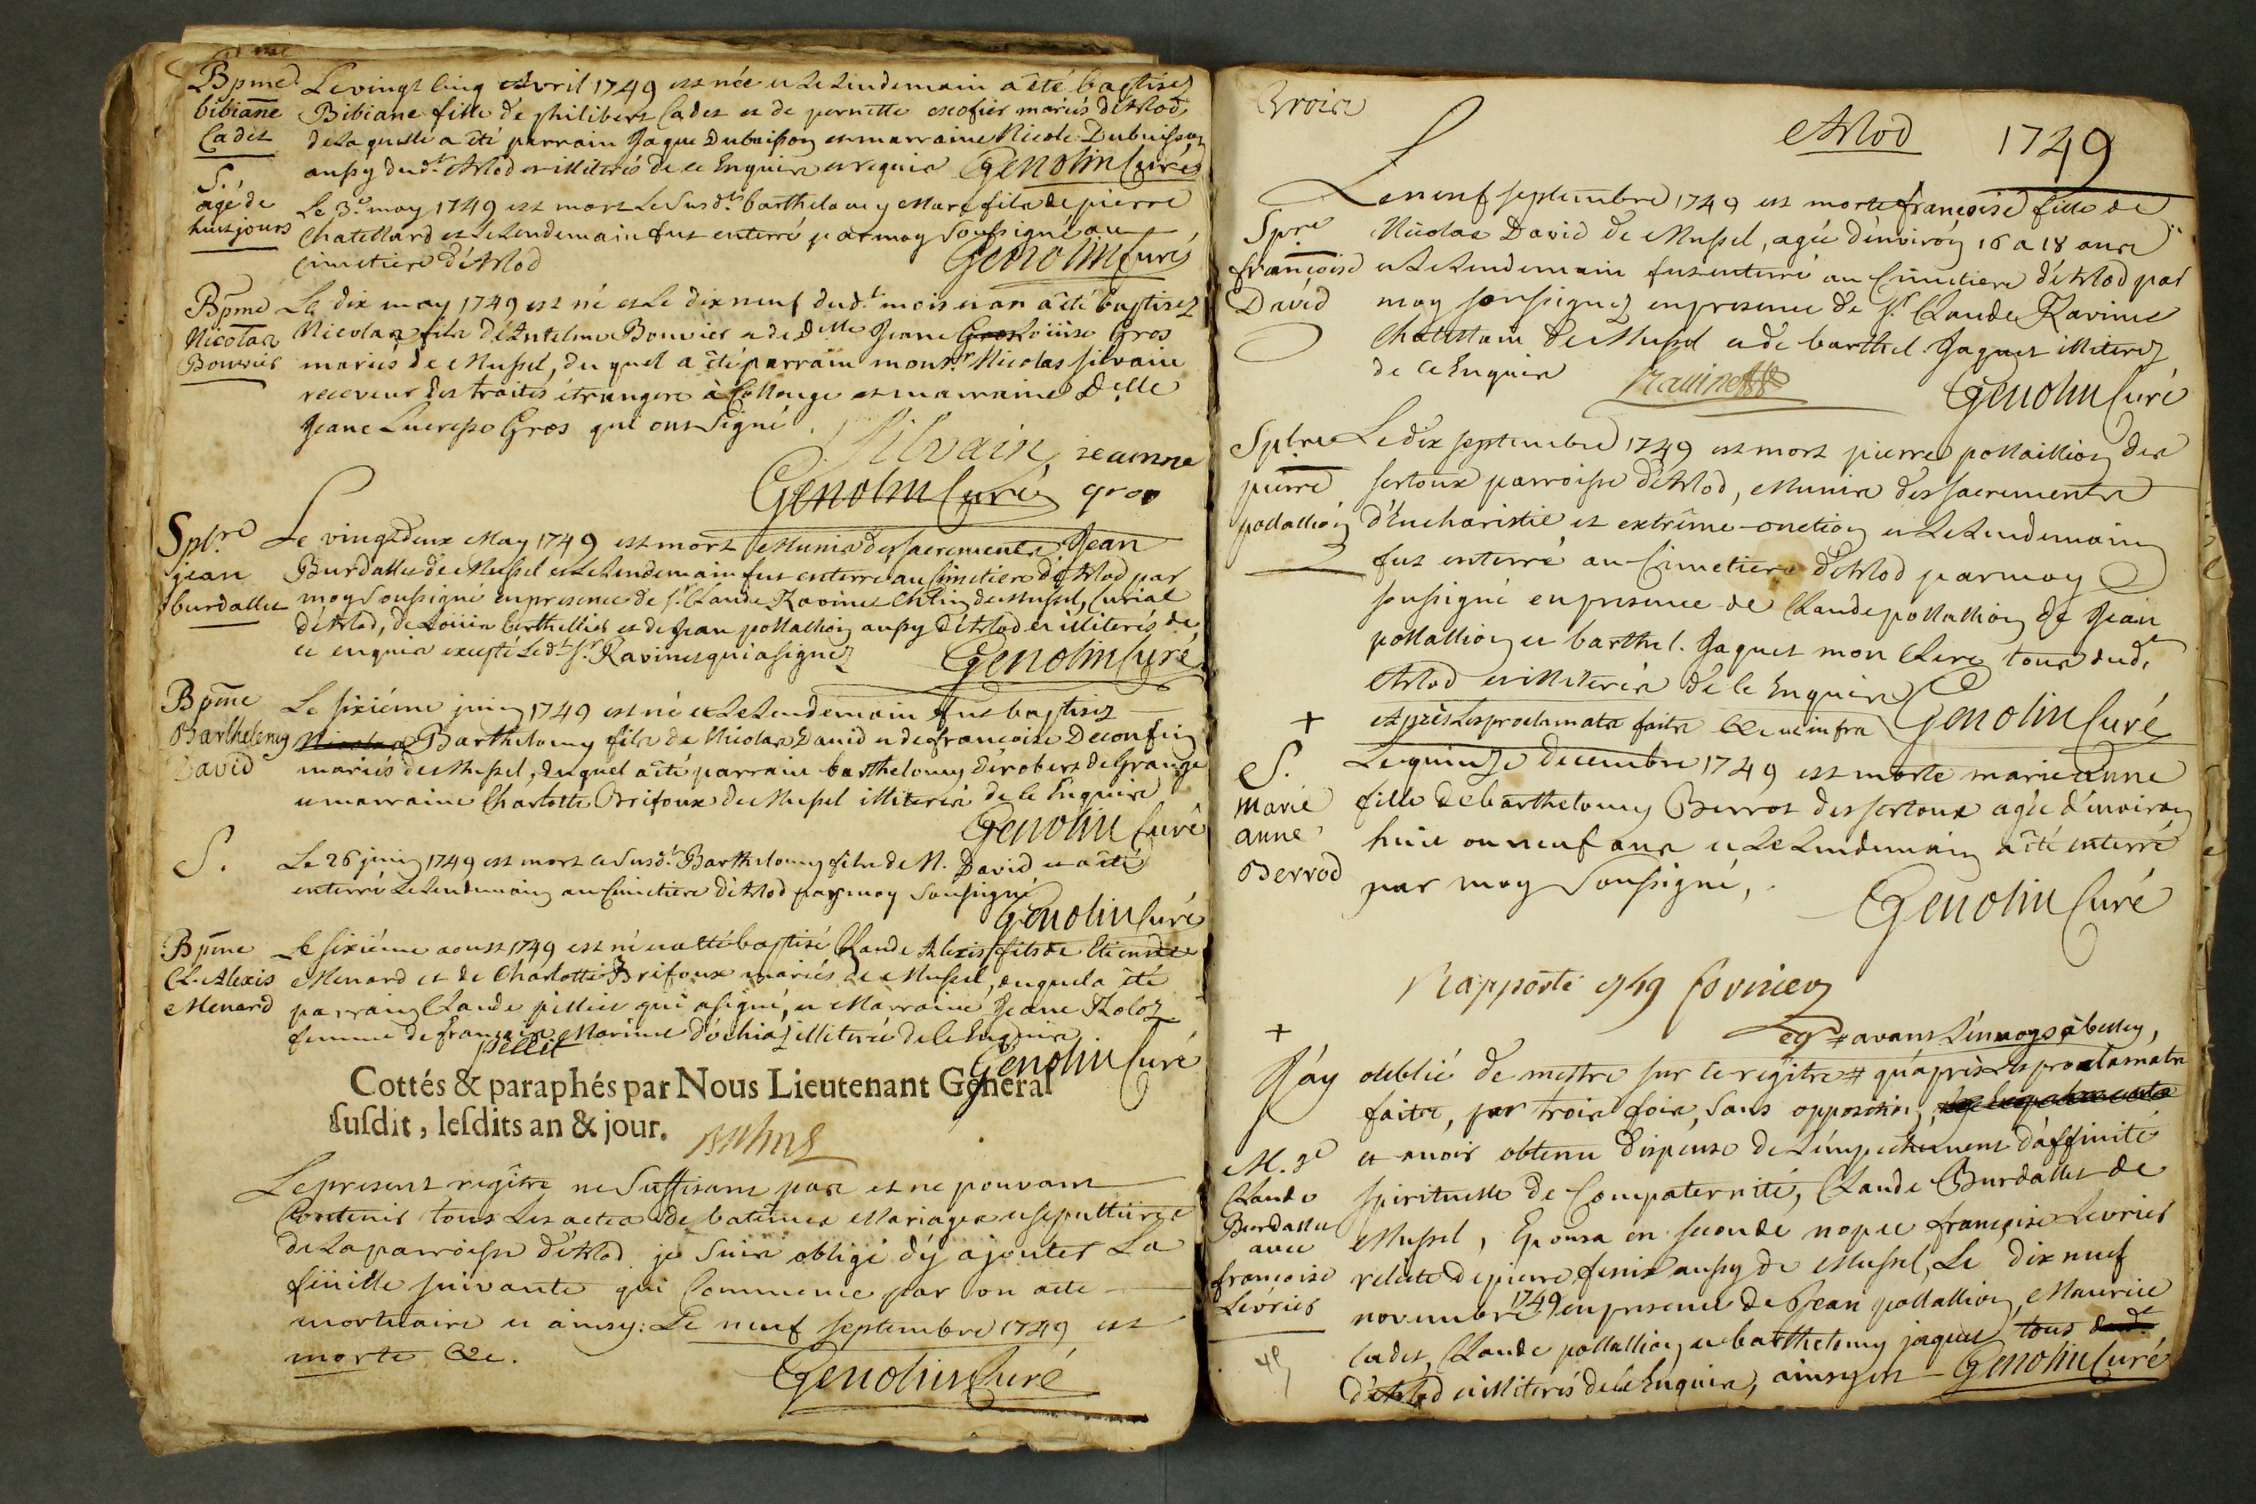 Bpme
bibiane
Cadet
Le vingt cinq Avril 1749 est née et le lendemain a été baptisez
Bibiane fille de philibert Cadet et de pernette mariés d'Arlod,
de laquelle a été parrain Jaque Dubuisson et marraine Nicole Dubuisson
aussy dud.t Arlod et illiterés de ce Enquis et requis Genolin Curé
S.
agé de
huit jours
Le 3.e may 1749 est mort le susd.t barthelemy Marc fils de pierre
Chatellard et le lendemain fut enterré par moy soussigné au
Cimetiere d'Arlod
Genolin Curé
Bpme
Nicolas
Bouvier
Le dix may 1749 est né et le dix neuf dud.t mois et an a été baptisez
Nicolas fils d'Antelme Bouvier et de Delle Jeane Gros Loüise Gros
mariés de Mussel, du quel a été parrain mons.r Nicolas silvain
receveur des traites étrangere à Collonge et marraine Delle
Jeane Lucresse Gros qui ont signé.
Silvain, jeanne
Genolin Curé gros
Splre
jean
burdallet
Le vingt deux May 1749 est mort Munis des sacrements Jean
Burdallet de Mussel et le lendemain fut enterré au Cimetiere d'Arlod par
moy soussigné en presence de s.r Claude Ravinet Chlin de Mussel, Curial
d'Arlod, de Loüis berthellier et de Jean pollallion aussy d'Arlod et illiterés de
ce enquis excepté led.t s.r Ravinet qui a signez
Genolin Curé
Bpme
Barthelemy
David
Le sixiéme juin 1749 est né et le lendemain fut baptisez
Nicolas Barthelemy fils de Nicolas David et de francoise Deconfin
mariés de Mussel, duquel a été parrain barthelemy derobert de Grange
et marraine Charlotte Brifoux de Mussel illiterés de ce Enquis
Genolin Curé
S.
Le 26 juin 1749 est mort le susd.t Barthelemy fils de N. David et a été
enterré le lendemain au Cimetiere d'Arlod par moy soussigné
Genolin Curé
Bpme
Cl. Alexis
Menard
Le sixiéme aoust 1749 est né et a été baptisé Claude Alexis fils de Etienne
Menard et de Charlotte Brifoux mariés de Mussel, duquel a été
parrain Claude pillet qui a signé, et Marraine Jeane Roloz
femme de françois Marinet d'ochiaz illiterée de ce Enquis
pellit
Genolin Curé
Cottés & paraphés par Nous Lieutenant Général
susdit, lesdits an & jour.
Le present regître ne suffisant pas et ne pouvant
Contenir tous les actes de batêmes Mariages et sepulturês
de la parroisse d'Arlod je suis obligé d'y ajouter La
feüille suivante qui Commence par un acte
mortuaire et ainsy: Le neuf septembre 1749 est
morte &c.
Genolin Curé
Trois
Arlod 1749
Spre
francoise
David
Le neuf septembre 1749 est morte françoise fille de
Nicolas David de Mussel, agée d'environ 16 a 18 ans
et le lendemain fut enterré au Cimetiere d'Arlod par
moy soussignez en presence de s.r Claude Ravinet
Chatellain de Mussel et de barthel. Jaquet illiterez
de ce Enquis Ravinet
Genolin Curé
Splre
pierre
pollallion
Le dix septembre 1749 est mort pierre pollaillion des
sertoux parroisse d'Arlod, Munis des sacrements
d'Eucharistie et extrême-onction et le lendemain
fut enterré au Cimetiere d'Arlod par moy
soussigné en presence de Claude pollallion de Jean
pollallion et barthel. Jaquet mon Clerc tous dud.t
Arlod et illiterés de ce Enquis
+ et après les proclamats faits &c ut infra Genolin Curé
S.
Marie
anne
Berrod
Le quinze decembre 1749 est morte marie anne
fille de barthelemy Berrot des sertoux agée d'environ
huit ou neuf ans et le lendemain a été enterré
par moy soussigné,
Genolin Curé
Rapporté 1749
# avant l'envoys à belley,
+
J'ay oublié de mettre sur le regître # qu'après les proclamats
faits, par trois fois, sans opposition,
et avoir obtenu dispense de l'empechement d'affinité
M.ge
Claude
Burdallet
avec
françoise
Levrier
spirituelle de Compaternité, Claude Burdallet de
Mussel, Epousa en seconde nopce françoise Levrier
relicte de pierre fenix aussy de Mussel, Le dix neuf
novembre 1749 en presence de Jean pollallion, Maurice
Cadet, Claude pollallion et barthelemy jaquet tous dud.t
d'Arlod et illiterés de ce Enquis, ainsy est Genolin Curé